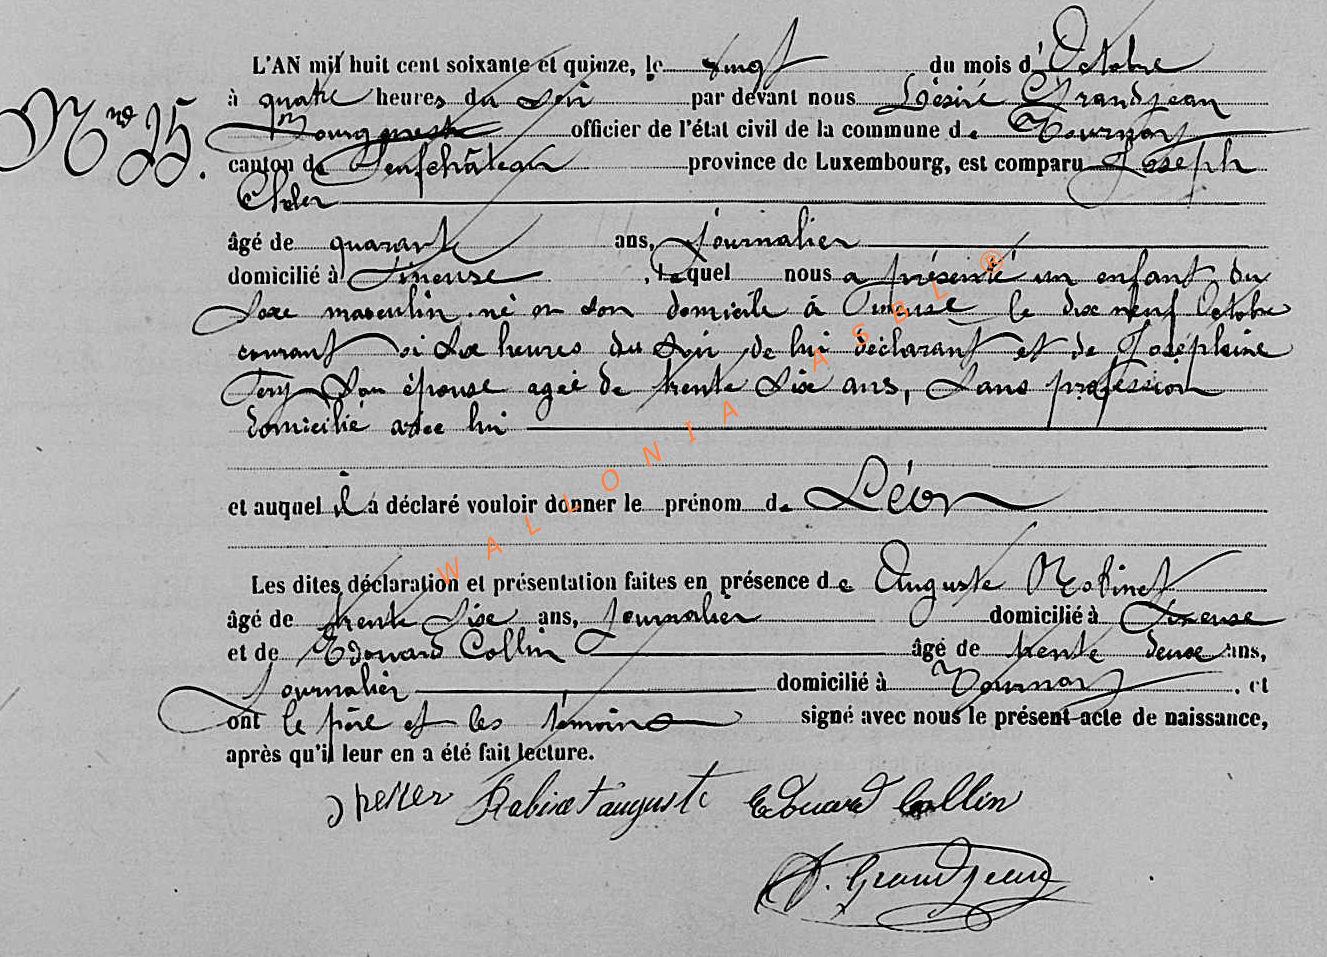 Nro 25.
L'AN mil huit cent soixante et quinze, le vingt du mois d'Octobre
à quatre heures du soir par devant nous Désiré Grandjean
Bourgmestre officier de l'état civil de la commune de Tournay
canton de Neufchâteau province de Luxembourg, est comparu Joseph
âgé de quarante ans, journalier
domicilié à Tineuse, lequel nous a présenté un enfant du
Sexe masculin né en son domicile à Tineuse le dix neuf Octobre
courant à Six heures du Soir, de lui déclarant et de Joséphine
Son épouse agée de trente Six ans, Sans profession
domicilié avec lui
et auquel il a déclaré vouloir donner le prénom de Léon
Les dites déclaration et présentation faites en présence de Auguste Robinet
âgé de trente Six ans, Journalier domicilié à Tineuse
et de Edouard Collin âgé de trente deux ans,
Journalier domicilié à Tournay, et
ont le père et les témoins signé avec nous le présent acte de naissance,
après qu'il leur en a été fait lecture.
Robinet auguste Edouard Collin
D. Grandjean
WALLONIA ASBL ®